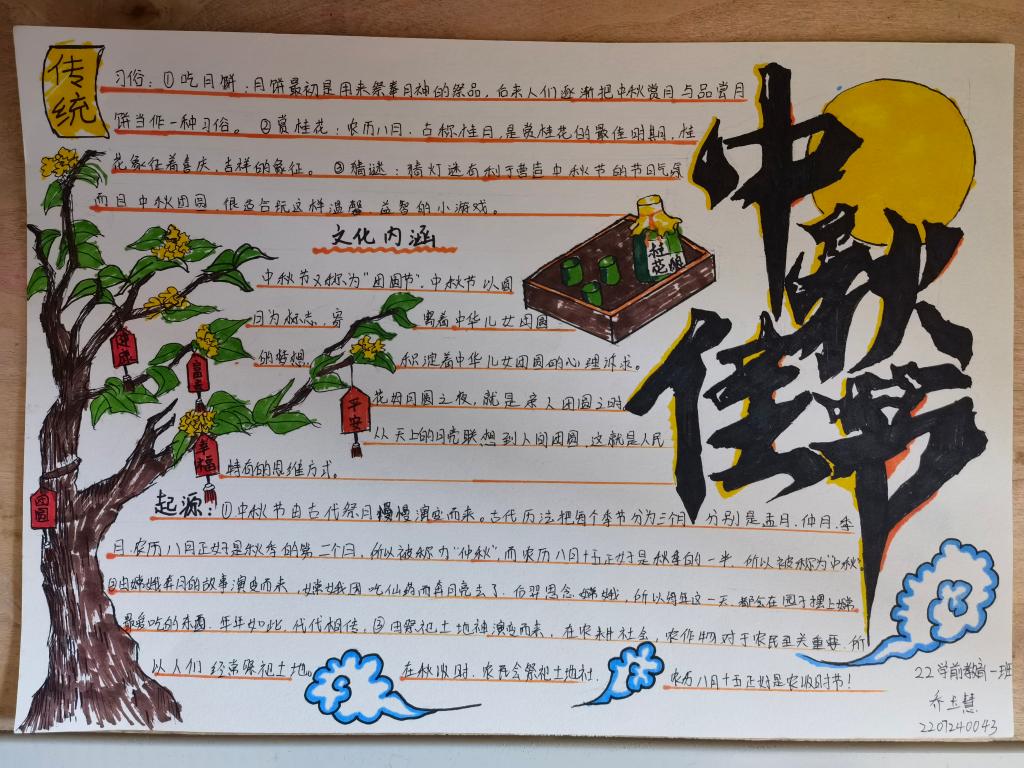 传统
中秋佳节
习俗：①吃月饼：月饼最初是用来祭奉月神的祭品，后来人们逐渐把中秋赏月与品尝月
饼当作一种习俗。②赏桂花：农历八月，古称桂月，是赏桂花的最佳时期，桂
花象征着喜庆、吉祥的象征。③猜谜：猜灯谜有利于营造中秋节的节日气氛
而且中秋团圆 很适合玩这样温馨 益智的小游戏。
文化内涵
中秋节又称为"团圆节"，中秋节以圆
月为标志，寄 寓着中华儿女团圆
的梦想， 积淀着中华儿女团圆的心理诉求。
花好月圆之夜，就是亲人团圆之时，
从天上的月亮联想到人间团圆，这就是人民
特有的思维方式。
起源：①中秋节由古代祭月慢慢演变而来。古代历法把每个季节分为三个月，分别是孟月，仲月，季
月，农历八月正好是秋季的第二个月，所以被称为"仲秋"而农历八月十五正好是秋季的一半，所以被称为"中秋"
②由嫦娥奔月的故事演变而来，嫦娥因吃仙药而奔月亮去了，后羿思念嫦娥，所以每年这一天，都会在园子摆上嫦
最爱吃的东西，年年如此，代代相传。③由祭祀土地神演变而来，在农耕社会，农作物对于农民至关重要，所
以人们经常祭祀土地。 在秋收时，农民会祭祀土地社， 农历八月十五正好是农收时节！
桂花酿
健康
富贵
平安
幸福
团圆
22学前教育一班
乔玉慧
2207240043